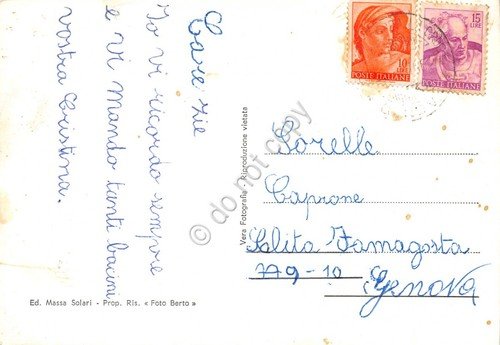 Care zie
Io vi ricordo sempre
e vi mando tanti bacini
vostra Cristina.
Ed. Massa Solari - Prop. Ris. « Foto Berto »
Vera Fotografia - Riproduzione vietata
10
LIRE
POSTE ITALIANE
15
LIRE
POSTE ITALIANE
Sorelle
Caprone
Salita Famagosta
779-10
Genova
© do not copy